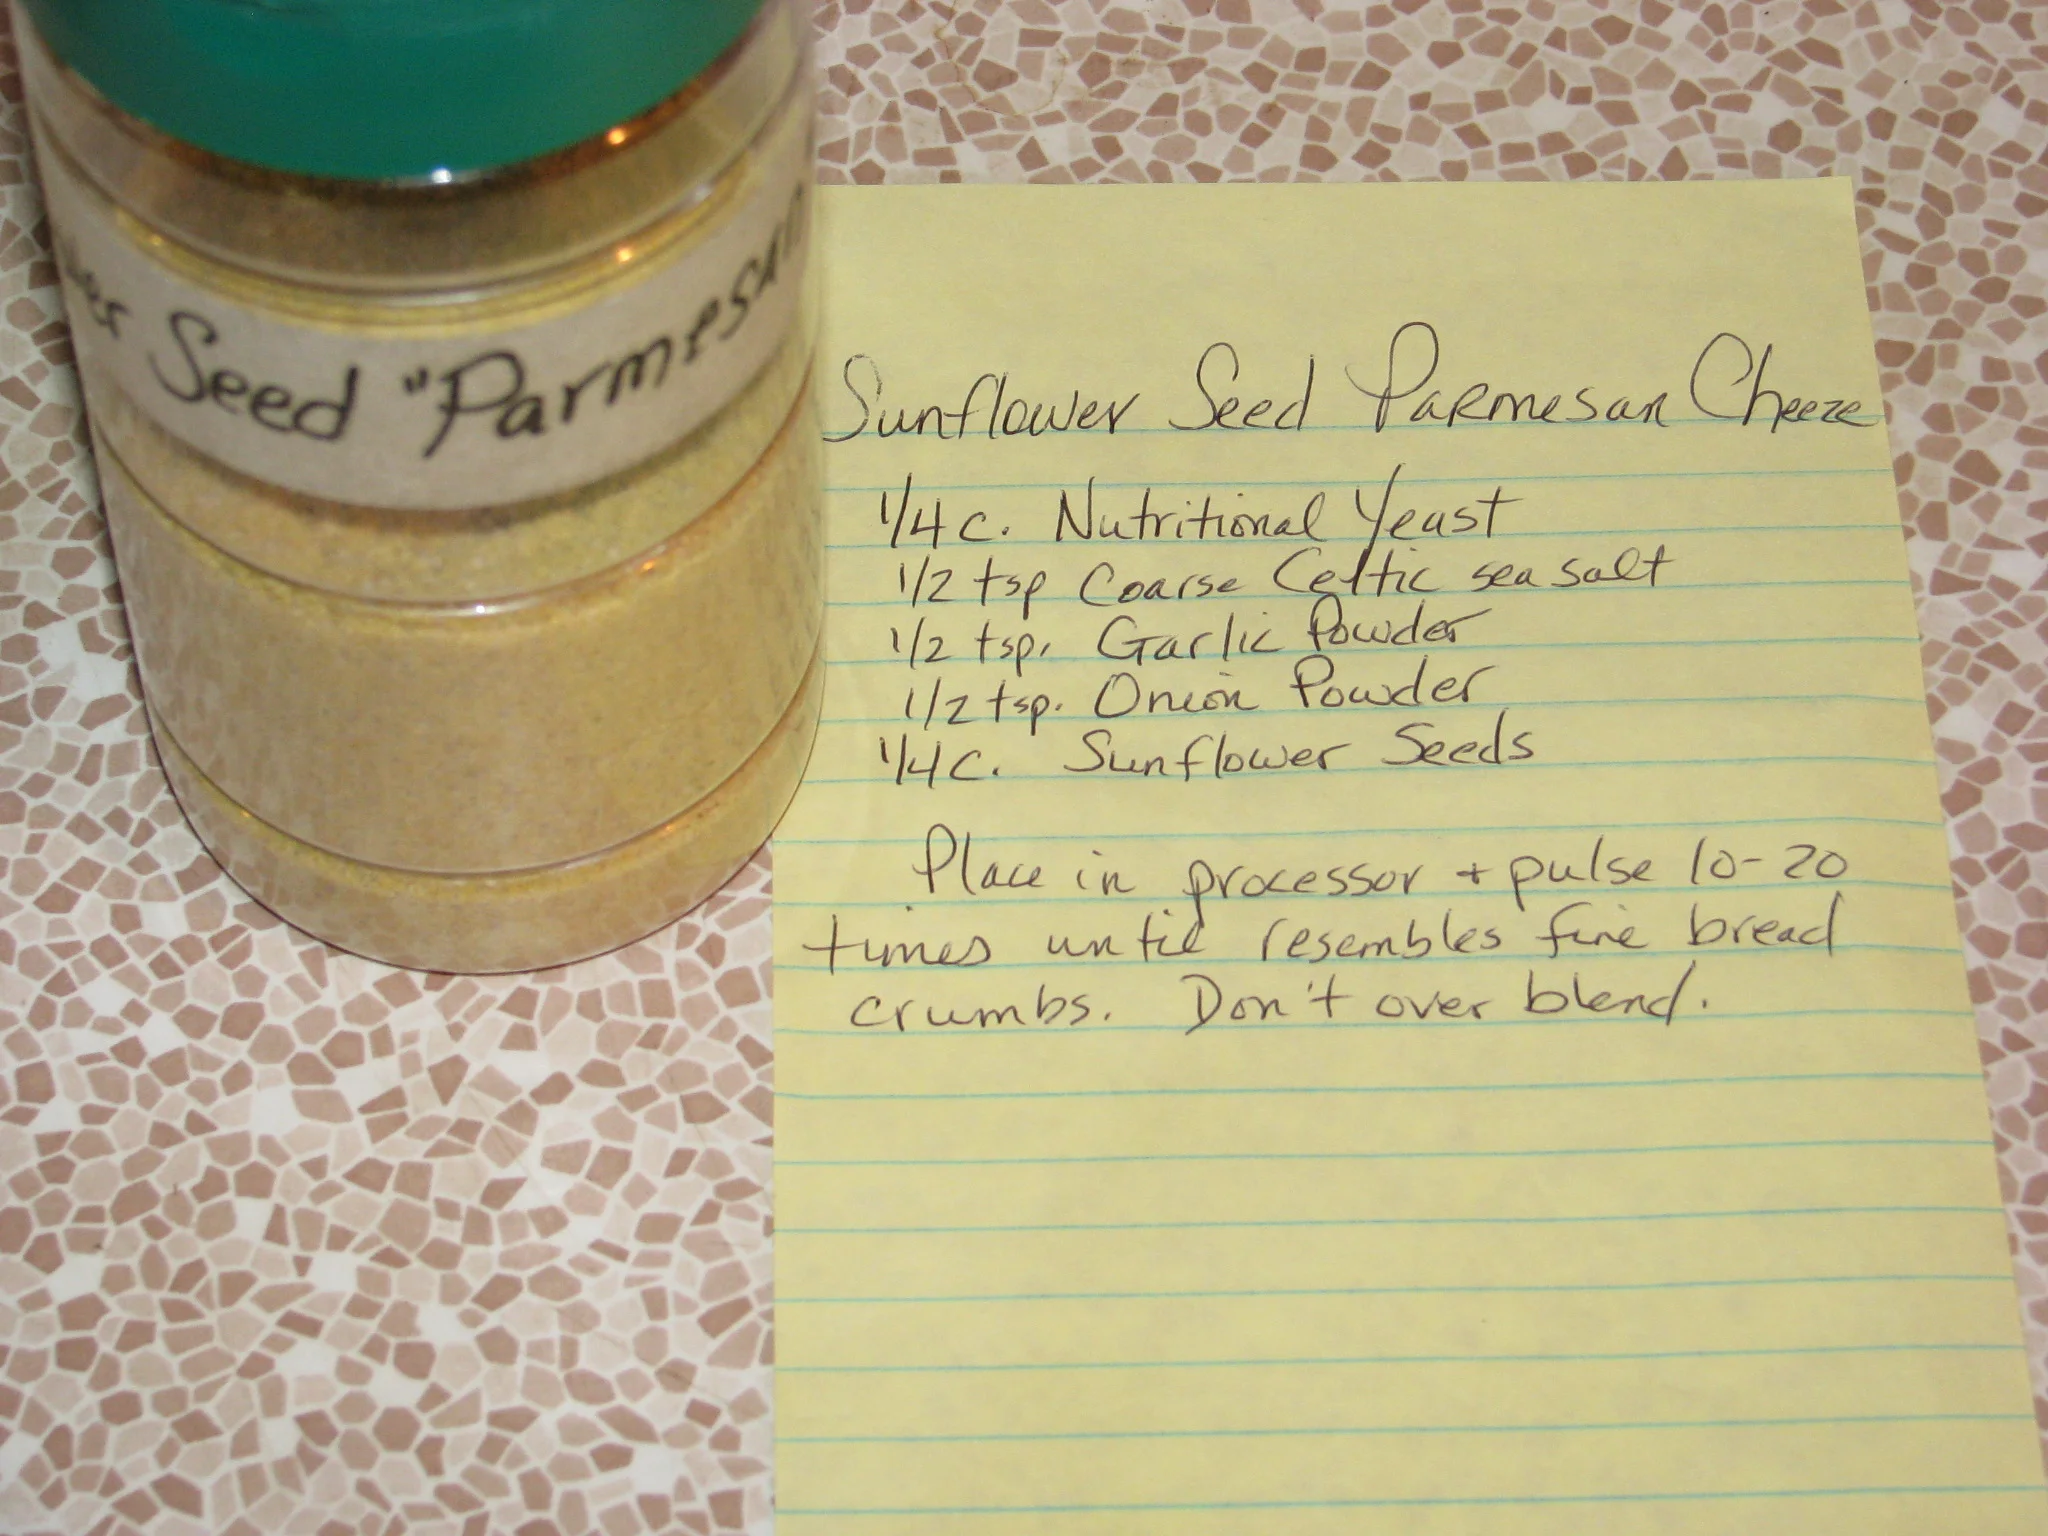 Seed "Parmesan
Sunflower Seed Parmesan Cheeze
1/4 c. Nutritional Yeast
1/2 tsp Coarse Celtic sea salt
1/2 tsp. Garlic Powder
1/2 tsp. Onion Powder
1/4 c. Sunflower Seeds
Place in processor + pulse 10-20
times until resembles fine bread
crumbs. Don't over blend.